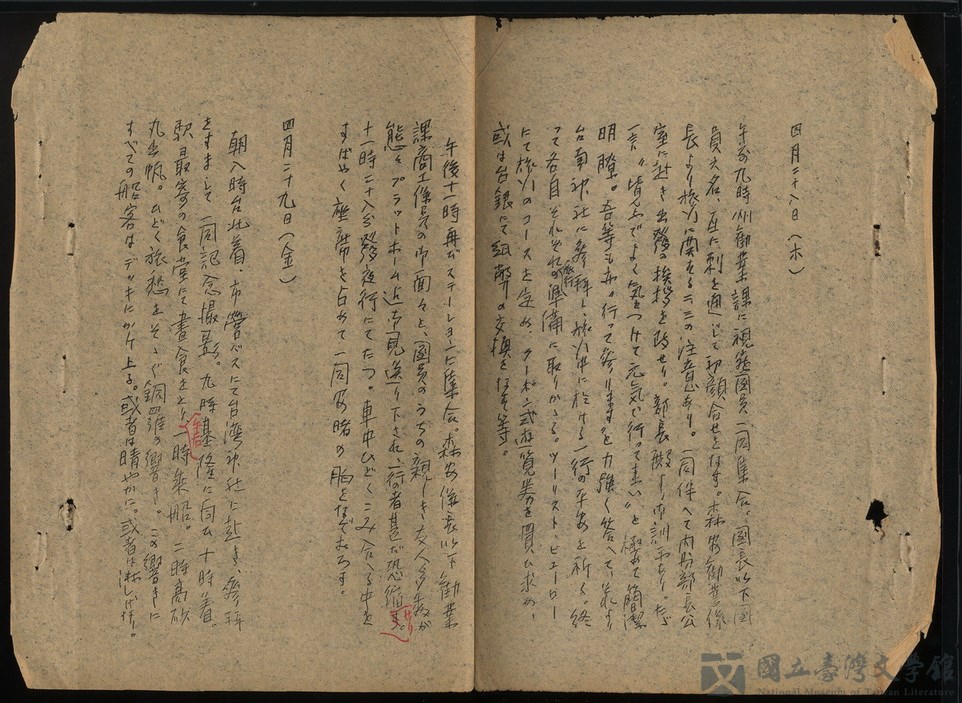 四月二十八日（木）
午前九時州勧業課に視察團員一同集合。團長以下團
員六名、互に刺を通じて初顔合せをなす。森安勧業係
長より旅行に関する二三の注意あり。一同伴へて内務部長公
室に赴き出発の挨拶を致せり。部長殿より御訓示あり。たゞ
一言“皆んなでよく気をつけて元気で行って来い”と極めて簡潔
明瞭。吾等も亦“行って参ります”と力強く答へて、それより
台南神社に参拝し、旅行中に於ける一行の平安を祈る。終
って各自それぞれ旅行の準備に取りかゝる。ツーリスト・ビューロー
にて旅行のコースを定め、クーポン式遊覧券を買ひ求め、
或は台銀にて紙幣の交換をなす等。
午後十一時再びステーションに集合。森安係長以下勧業
課商工係員の御面々と、團員のうちの親しき友人多数が
態々プラットホーム迄御見送り下され、一行の者甚だ恐縮す。せり
十一時二十分発夜行にてたつ。車中ひどくこみ合へる中を
すばやく座席を占めて一同安堵の胸をなでおろす。
四月二十九日（金）
朝八時台北着、市営バスにて台湾神社に赴き、参拝
をすまして一同記念撮影。九時基隆に向ひ十時着。
駅最寄の食堂にて昼食をとり、午后一時乗船。二時高砂
丸出帆。ひどく旅愁をそゝぐ銅鑼の響き。この響きに
すべての船客はデッキにかけ上る。或者は晴やかに。或者は淋しげに。